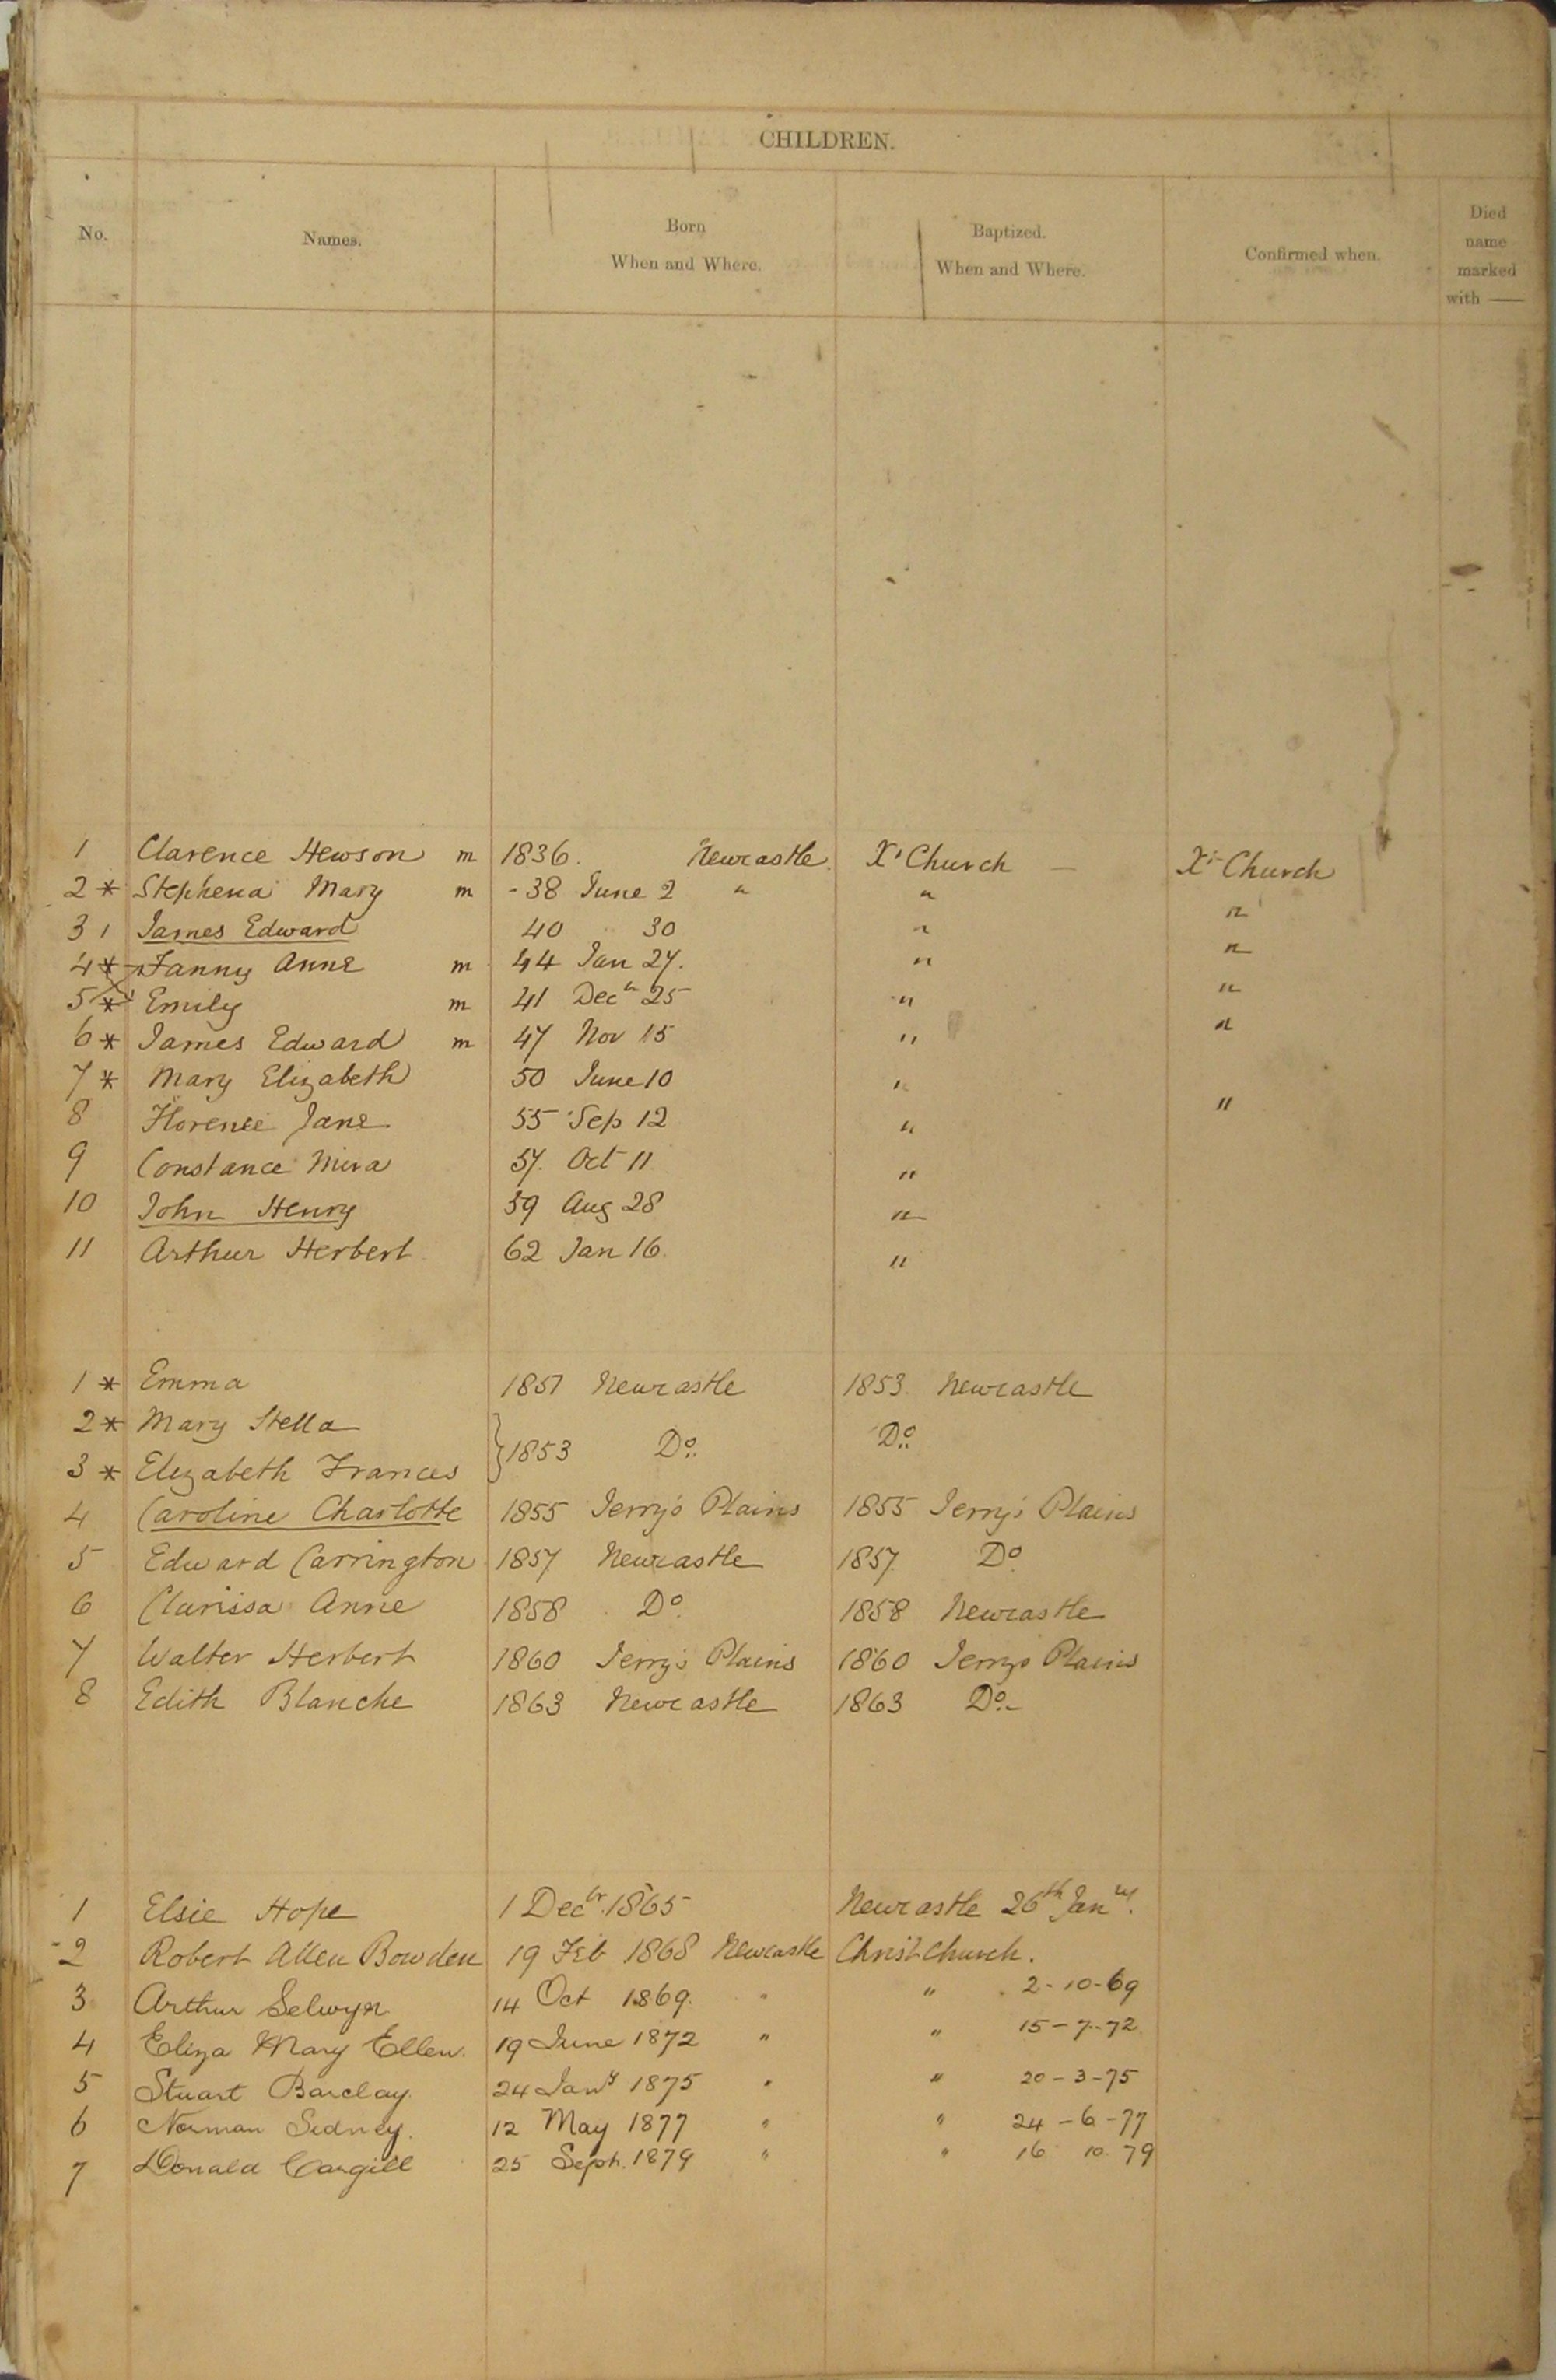 CHILDREN.
No. Names. Born When and Where. Baptized. When and Where. Confirmed when. Died name marked with —
1 Clarence Hewson m 1836. Newcastle. Xt Church — Xt Church
2 * Stephena Mary m - 38 June 2 " " "
3 1 James Edward 40 30 " "
4 * Fanny Anne m 44 Jan 27. " "
5 * Emily m 41 Decr 25 " "
6 * James Edward m 47 Nov 15 "
7 * Mary Elizabeth 50 June 10 " "
8 Florence Jane 55 Sep 12 "
9 Constance Mira 57. Oct 11 "
10 John Henry 59 Aug 28 "
11 Arthur Herbert 62 Jan 16. "
1 * Emma 1851 Newcastle 1853. Newcastle
2 * Mary Stella } 1853 Do. Do.
3 * Elizabeth Frances
4 Caroline Charlotte 1855 Jerry's Plains 1855 Jerry's Plains
5 Edward Carrington 1857 Newcastle 1857. Do
6 Clarissa Anne 1858 Do. 1858 Newcastle
7 Walter Herbert 1860 Jerry's Plains 1860 Jerrys Plains
8 Edith Blanche 1863 Newcastle 1863 Do.
1 Elsie Hope 1 Decbr. 1865 Newcastle 26th Jany.
2 Robert Allen Bowden 19 Feb 1868 Newcastle Christ Church.
3 Arthur Selwyn. 14 Oct 1869. " " 2-10-69
4 Eliza Mary Ellen. 19 June 1872 " " 15-7-72
5 Stuart Barclay. 24 Jany 1875 " " 20-3-75
6 Norman Sidney. 12 May 1877 " " 24-6-77
7 Donald Cargill 25 Sept. 1879 " " 16 10. 79